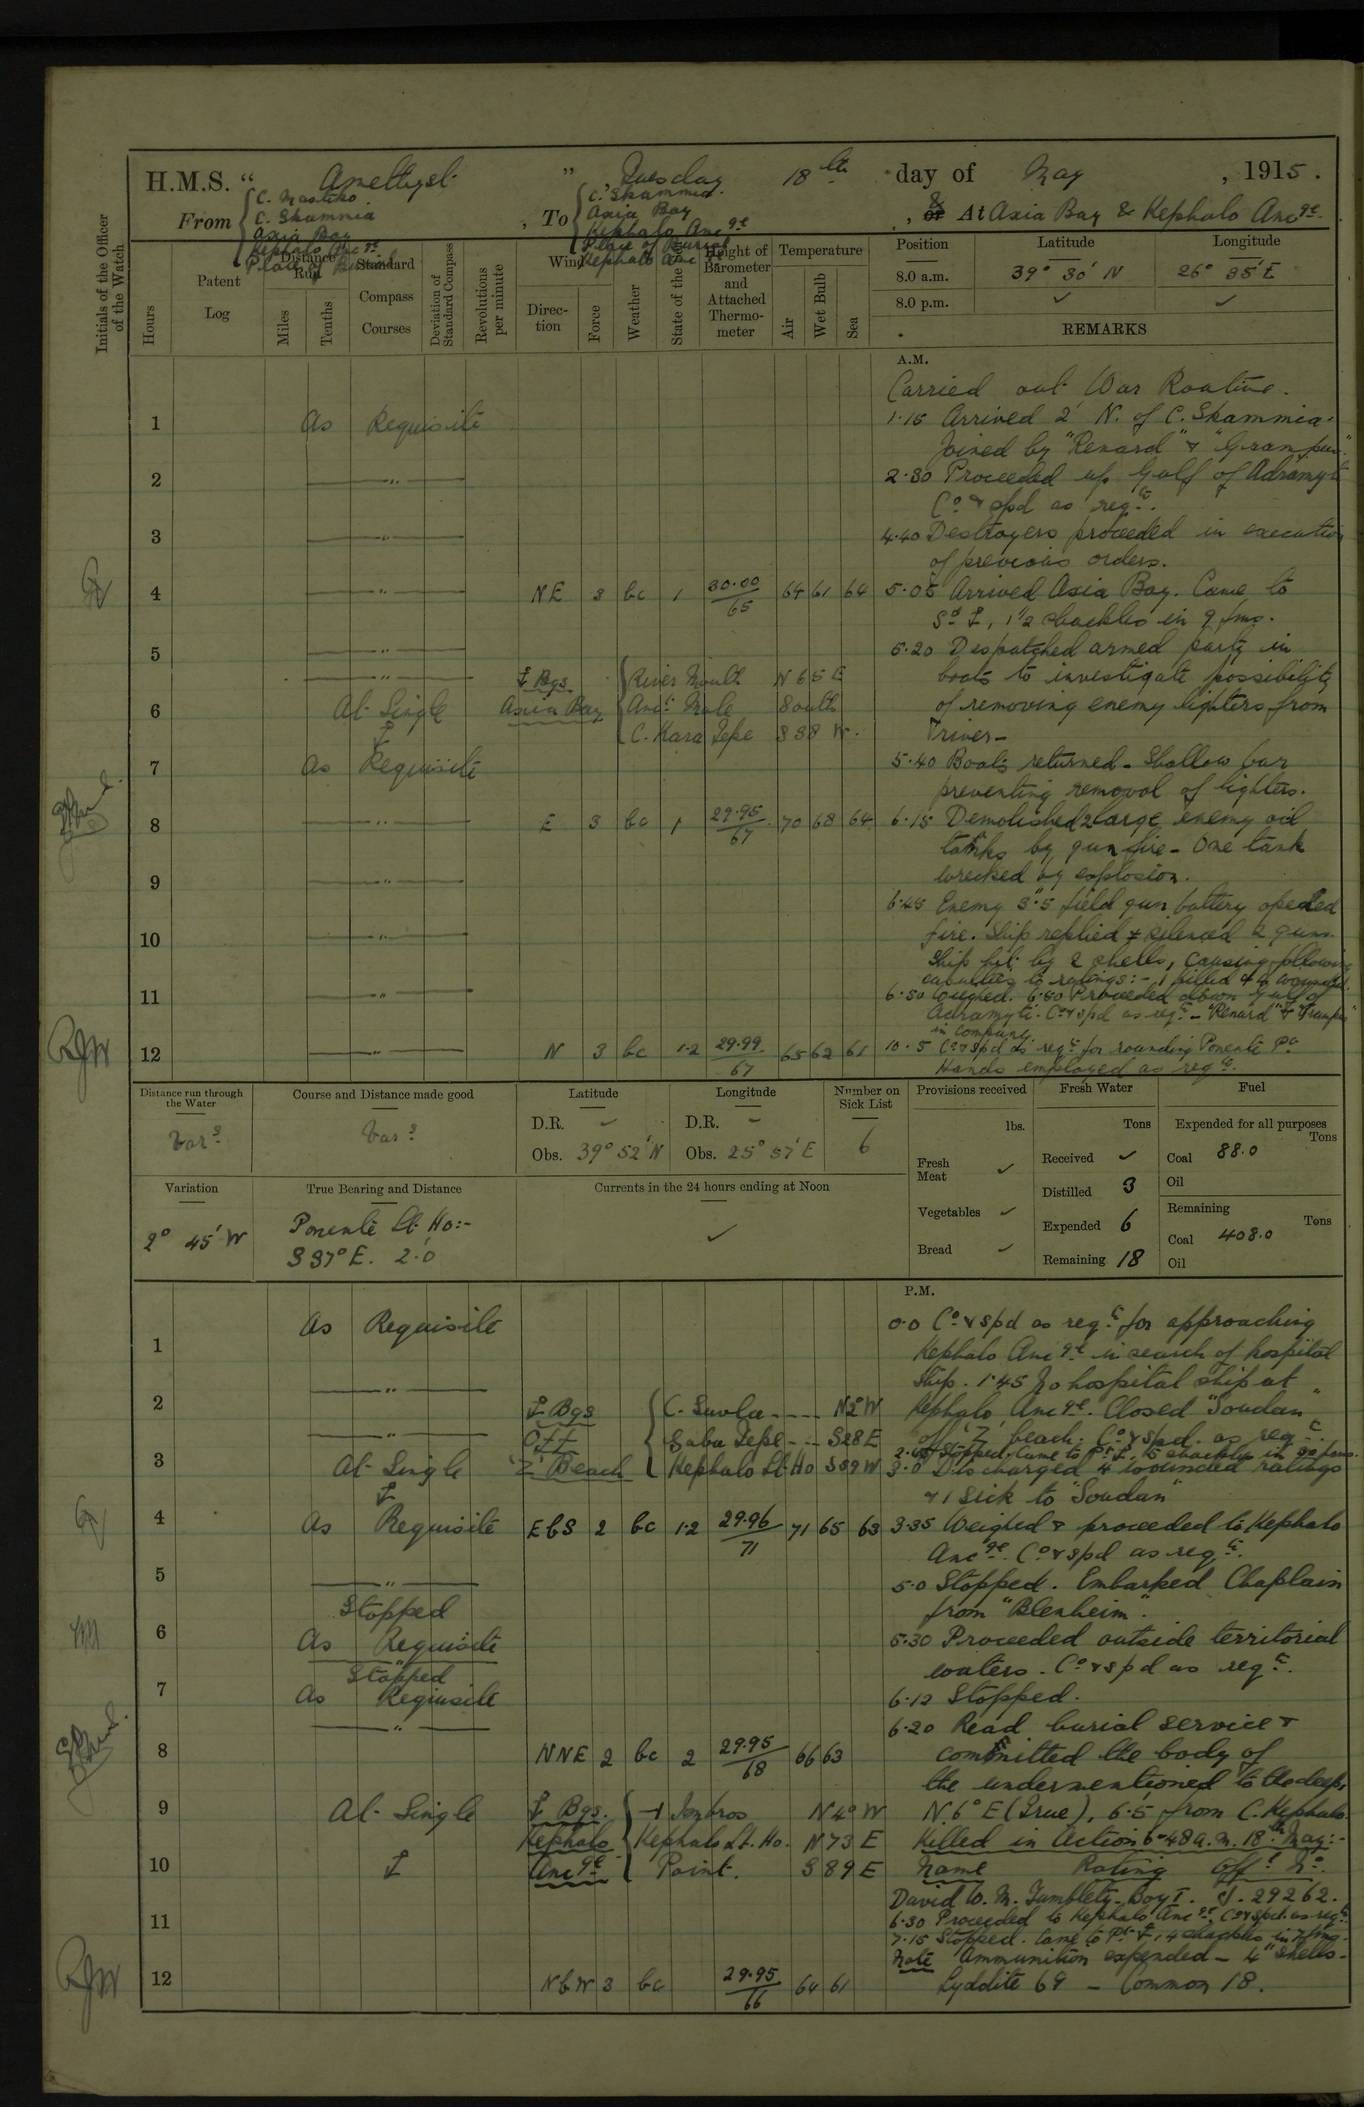 H.M.S. " Amethyst " Tuesday 18th day of May, 1915.
From { C. Mastiko
C. Skammia
Asia Bay
Kephalo Ancge
Place of Burial
, To { C. Skammia.
Asia Bay
Kephalo Ancge
Place of Burial
Kephalo Ancge
, & At Asia Bay & Kephalo Ancge.
Initials of the Officer of the Watch
Hours
Patent Log
Distance Run
Miles
Tenths
Standard Compass Courses
Deviation of Standard Compass
Revolutions per minute
Wind
Direction
Force
Weather
State of the Sea
Height of Barometer and Attached Thermometer
Temperature
Air
Wet Bulb
Sea
Position Latitude Longitude
8.0 a.m. 39° 30' N 26° 35' E
8.0 p.m. ✓ ✓
REMARKS
A.M.
Carried out War Routine.
1.15 Arrived 2' N. of C. Skammia.
Joined by "Renard" & "Grampus".
2.30 Proceeded up Gulf of Adramyti
Co & spd as reqte.
4.40 Destroyers proceeded in execution
of previous orders.
5.05 Arrived Asia Bay. Came to
Sd ⚓, 1½ shackles in 9 fms.
5.20 Despatched armed party in
boats to investigate possibility
of removing enemy lighters from
river-
5.40 Boats returned - Shallow bar
preventing removal of lighters.
6.15 Demolished 2 large enemy oil
tanks by gun fire - One tank
wrecked by explosion.
6.45 Enemy 3".5 field gun battery opened
fire. Ship replied & silenced 2 guns.
Ship hit by 2 shells, causing following
casualties to ratings:- 1 killed & 4 wounded.
6.50 Weighed. 6.50 Proceeded down Gulf of
Adramyti. Co & spd as reqte - "Renard" & "Grampus"
in company
10.5 Co & spd as reqte for rounding Ponente Pt
Hands employed as reqte.
1 As Requisite
2 — " —
3 — " —
4 — " — NE 3 bc 1 30.00/65 64 61 64
5 — " —
— " —
⚓ Bgs. Asia Bay { River Mouth N 65 E
Anct Mole South
C. Kara Tepe S 38 W.
6 At Single ⚓
7 As Requisite
8 — " — E 3 bc 1 29.95/67 70 68 64
9 — " —
10 — " —
11 — " —
12 — " — N 3 bc 1.2 29.99/67 65 62 61
RJW
Distance run through the Water
Vars
Course and Distance made good
Vars
Latitude
D.R. ✓
Obs. 39° 52' N
Longitude
D.R. -
Obs. 25° 57' E
Number on Sick List
6
Provisions received
lbs.
Fresh Meat ✓
Vegetables ✓
Bread ✓
Fresh Water
Tons
Received ✓
Distilled 3
Expended 6
Remaining 18
Fuel
Expended for all purposes
Tons
Coal 88.0
Oil
Remaining
Tons
Coal 408.0
Oil
Variation
2° 45' W
True Bearing and Distance
Ponente Lt Ho:-
S 37° E. 2.'0
Currents in the 24 hours ending at Noon
✓
P.M.
0.0 Co & spd as reqte for approaching
Kephalo Ancge in search of hospital
ship. 1.45 No hospital ship at
Kephalo Ancge. Closed "Soudan"
off 'Z' beach. Co & spd. as reqte.
Stopped. Came to Pt ⚓, 5 shackles in 30 fms.
3.0 Discharged 4 wounded ratings
& 1 sick to "Soudan"
3.35 Weighed & proceeded to Kephalo
Ancge. Co & spd as reqte.
5.0 Stopped. Embarked Chaplain
from "Blenheim".
5.30 Proceeded outside territorial
waters. Co & spd as reqte.
6.12 Stopped.
6.20 Read burial service &
committed the body of
the undermentioned to the deep,
N. 6° E (True), 6.'5 from C. Kephalo.
Killed in Action 6-48 a.m. 18th May:-
Name Rating Offl No.
David W. M. Tumblety - Boy I. J. 29262.
6.30 Proceeded to Kephalo Ancge, Co & spd. as reqte
7.15 Stopped. Came to Pt ⚓, 4 shackles in 7 fms-
Note Ammunition expended - 4" Shells -
Lyddite 69 - Common 18.
1 As Requisite
2 — " —
— " —
⚓ Bgs Off 'Z' Beach { C. Suvla ---- N2°W
Gaba Tepe --- S28E
Kephalo Lt. Ho S59W
3 At Single ⚓
4 As Requisite EbS 2 bc 1.2 29.96/71 71 65 63
5 — " —
Stopped
6 As Requisite
— " —
Stopped
7 As Requisite
— " —
8 NNE 2 bc 2 29.95/68 66 63
9 At Single
10 ⚓
⚓ Bgs. Kephalo Ancge { Imbros N 4° W
Kephalo Lt. Ho. N 73 E
Point. S 89 E
11
12 NbW 3 bc 29.95/66 64 61
RJW